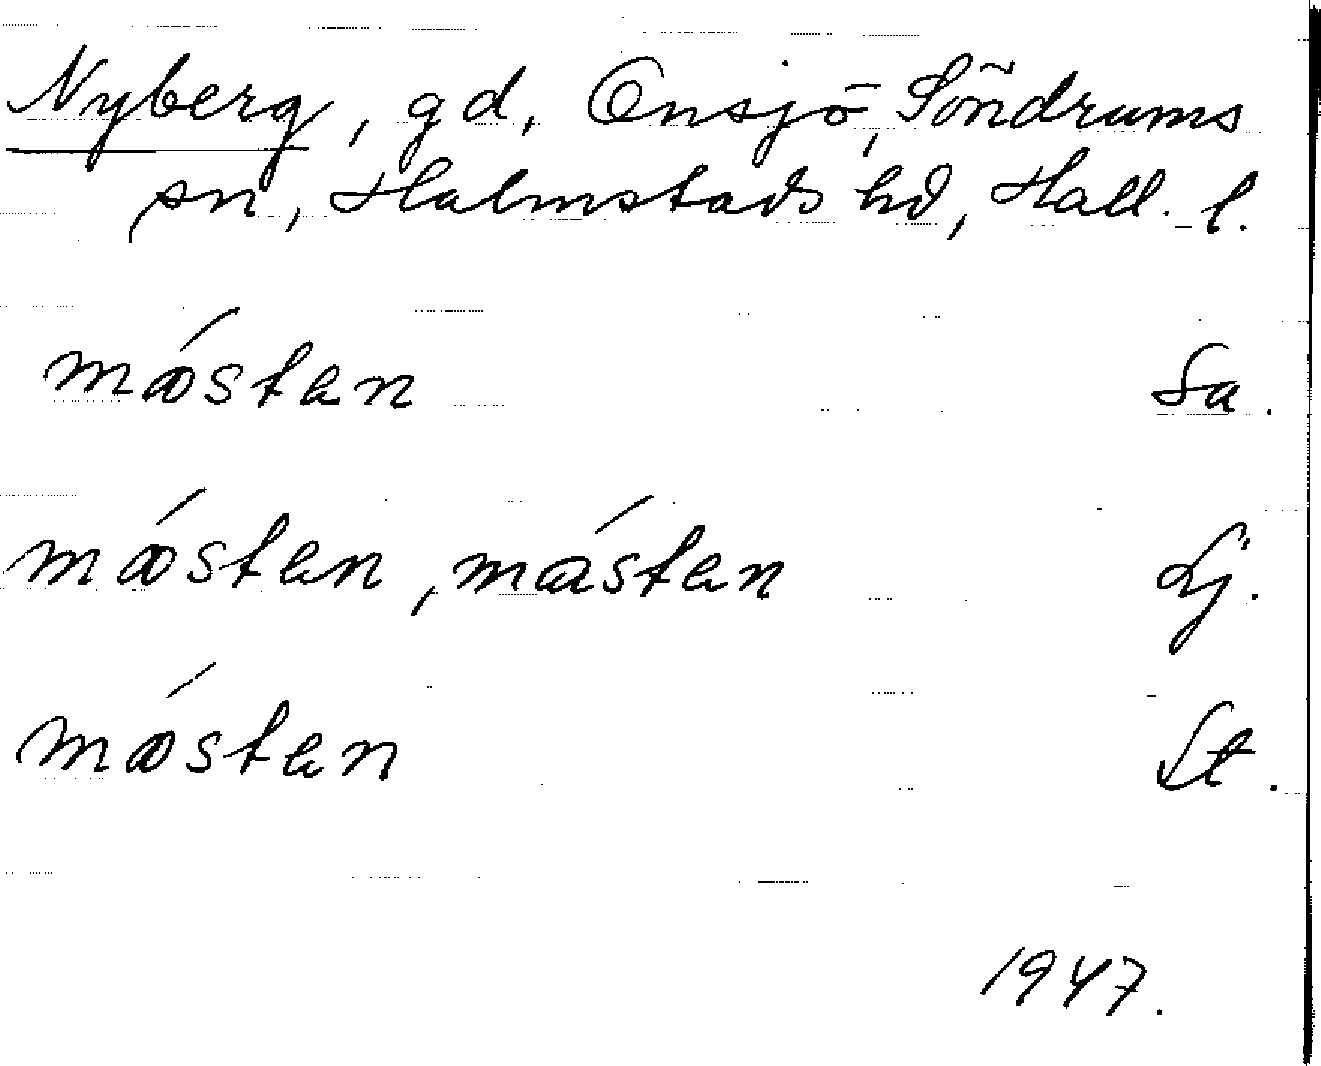 Nyberg, gd, Onsjö, Söndrums
sn, Halmstads hd, Hall. l.
mǿstan Sa.
mǿstan, mǽstan Lj.
mǿstan St.
1947.